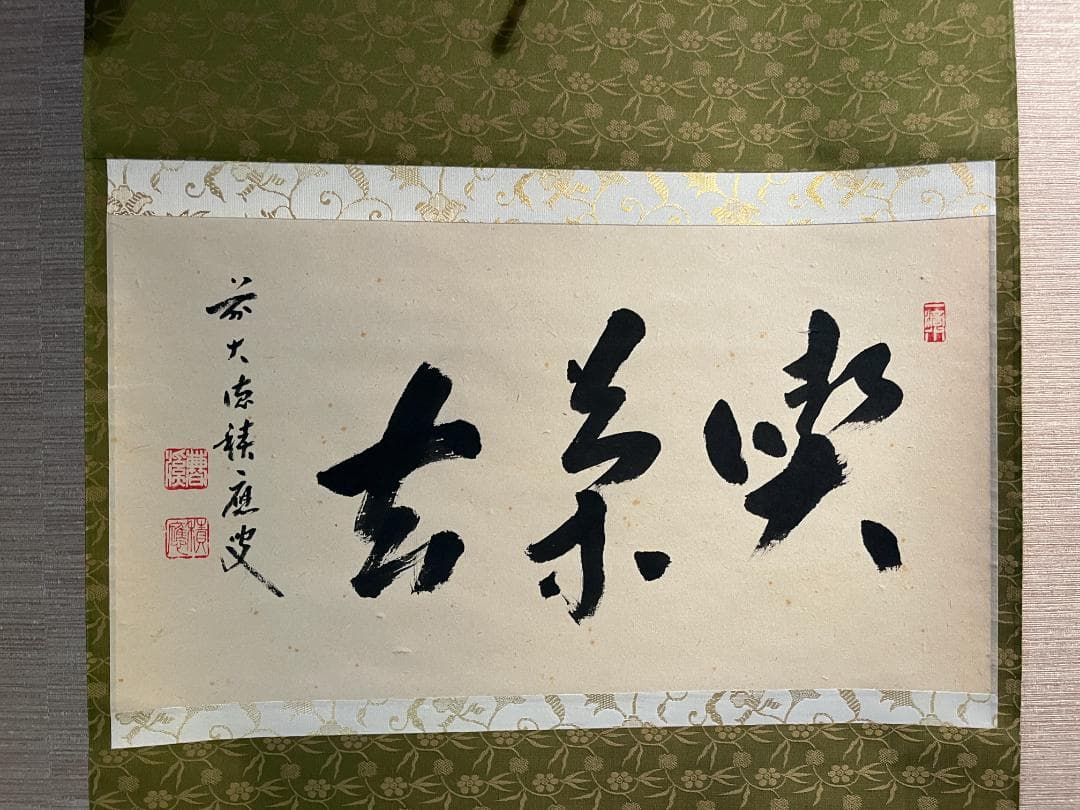 喫茶去
前大徳積應叟
積應